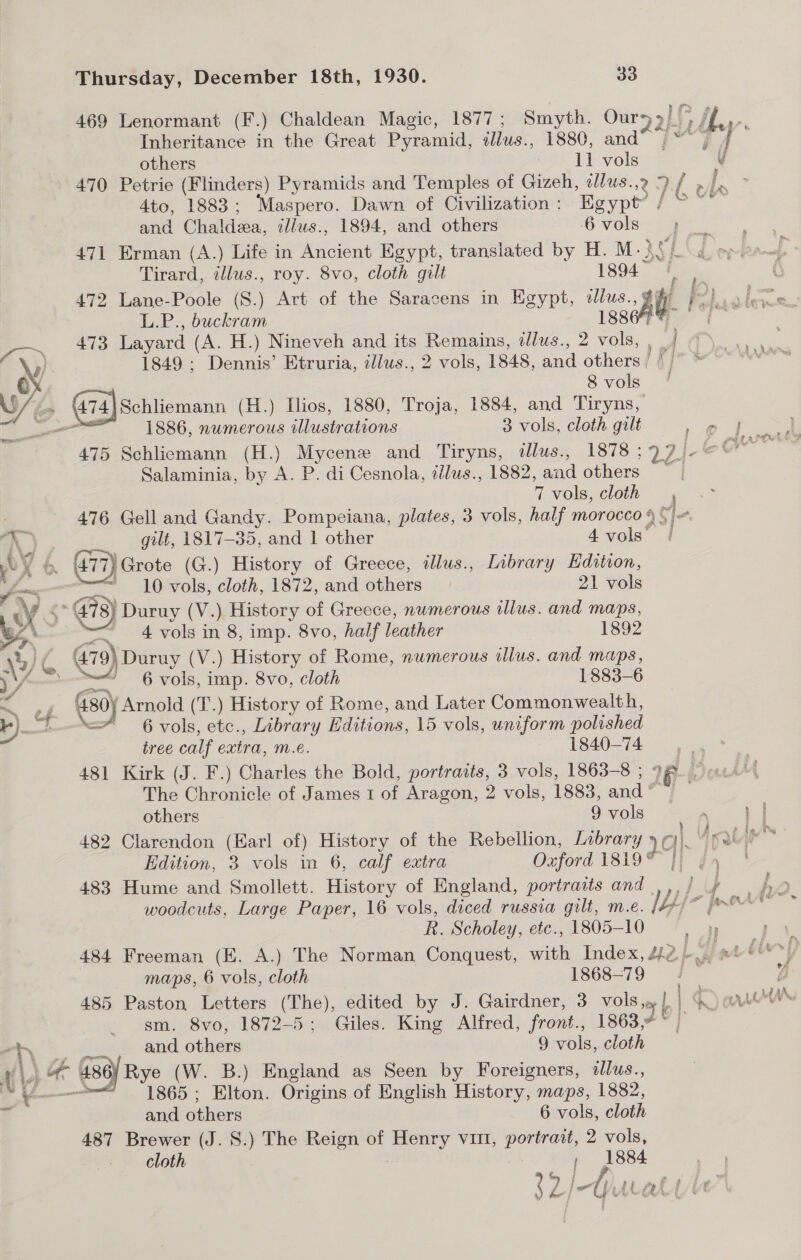 Thursday, December 18th, 1930. 33
469 Lenormant (F.) Chaldean Magic, 1877; Smyth. Our
Inheritance in the Great Pyramid, illus., 1880, and
others 11 vols
470 Petrie (Flinders) Pyramids and Temples of Gizeh, illus.,
4to, 1883; Maspero. Dawn of Civilization: Egypt
and Chaldæa, illus., 1894, and others 6 vols
471 Erman (A.) Life in Ancient Egypt, translated by H. M.
Tirard, illus., roy. 8vo, cloth gilt 1894
472 Lane-Poole (S.) Art of the Saracens in Egypt, illus.,
L.P., buckram 1886
473 Layard (A. H.) Nineveh and its Remains, illus., 2 vols,
1849; Dennis' Etruria, illus., 2 vols, 1848, and others
8 vols
474 Schliemann (H.) Ilios, 1880, Troja, 1884, and Tiryns,
1886, numerous illustrations 3 vols, cloth gilt
475 Schliemann (H.) Mycenæ and Tiryns, illus., 1878;
Salaminia, by A. P. di Cesnola, illus., 1882, and others
7 vols, cloth
476 Gell and Gandy. Pompeiana, plates, 3 vols, half morocco
gilt, 1817-35, and 1 other 4 vols
477 Grote (G.) History of Greece, illus., Library Edition,
10 vols, cloth, 1872, and others 21 vols
478 Duruy (V.) History of Greece, numerous illus. and maps,
4 vols in 8, imp. 8vo, half leather 1892
479 Duruy (V.) History of Rome, numerous illus. and maps,
6 vols, imp. 8vo, cloth 1883-6
480 Arnold (T.) History of Rome, and Later Commonwealth,
6 vols, etc., Library Editions, 15 vols, uniform polished
tree calf extra, m.e. 1840-74
481 Kirk (J. F.) Charles the Bold, portraits, 3 vols, 1863-8;
The Chronicle of James I of Aragon, 2 vols, 1883, and
others 9 vols
482 Clarendon (Earl of) History of the Rebellion, Library
Edition, 3 vols in 6, calf extra Oxford 1819
483 Hume and Smollett. History of England, portraits and
woodcuts, Large Paper, 16 vols, diced russia gilt, m.e.
R. Scholey, etc., 1805-10
484 Freeman (E. A.) The Norman Conquest, with Index,
maps, 6 vols, cloth 1868-79
485 Paston Letters (The), edited by J. Gairdner, 3 vols,
sm. 8vo, 1872-5; Giles. King Alfred, front., 1863,
and others 9 vols, cloth
486 Rye (W. B.) England as Seen by Foreigners, illus.,
1865; Elton. Origins of English History, maps, 1882,
and others 6 vols, cloth
487 Brewer (J. S.) The Reign of Henry VIII, portrait, 2 vols,
cloth 1884